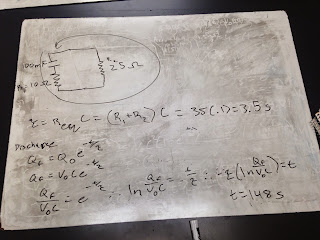 R₂ 25Ω
R₁ 10Ω
τ = R_eq C = (R₁+R₂) C = 35(.1) = 3.5 s
Discharge
Q_f = Q₀ e^(-t/τ)
Q_f = V₀C e^(-t/τ)
Q_f/V₀C = e^(-t/τ) ∴ ln Q_f/V₀C = -t/τ ∴ -τ(ln Q_f/V₀C) = t
t = 148 s